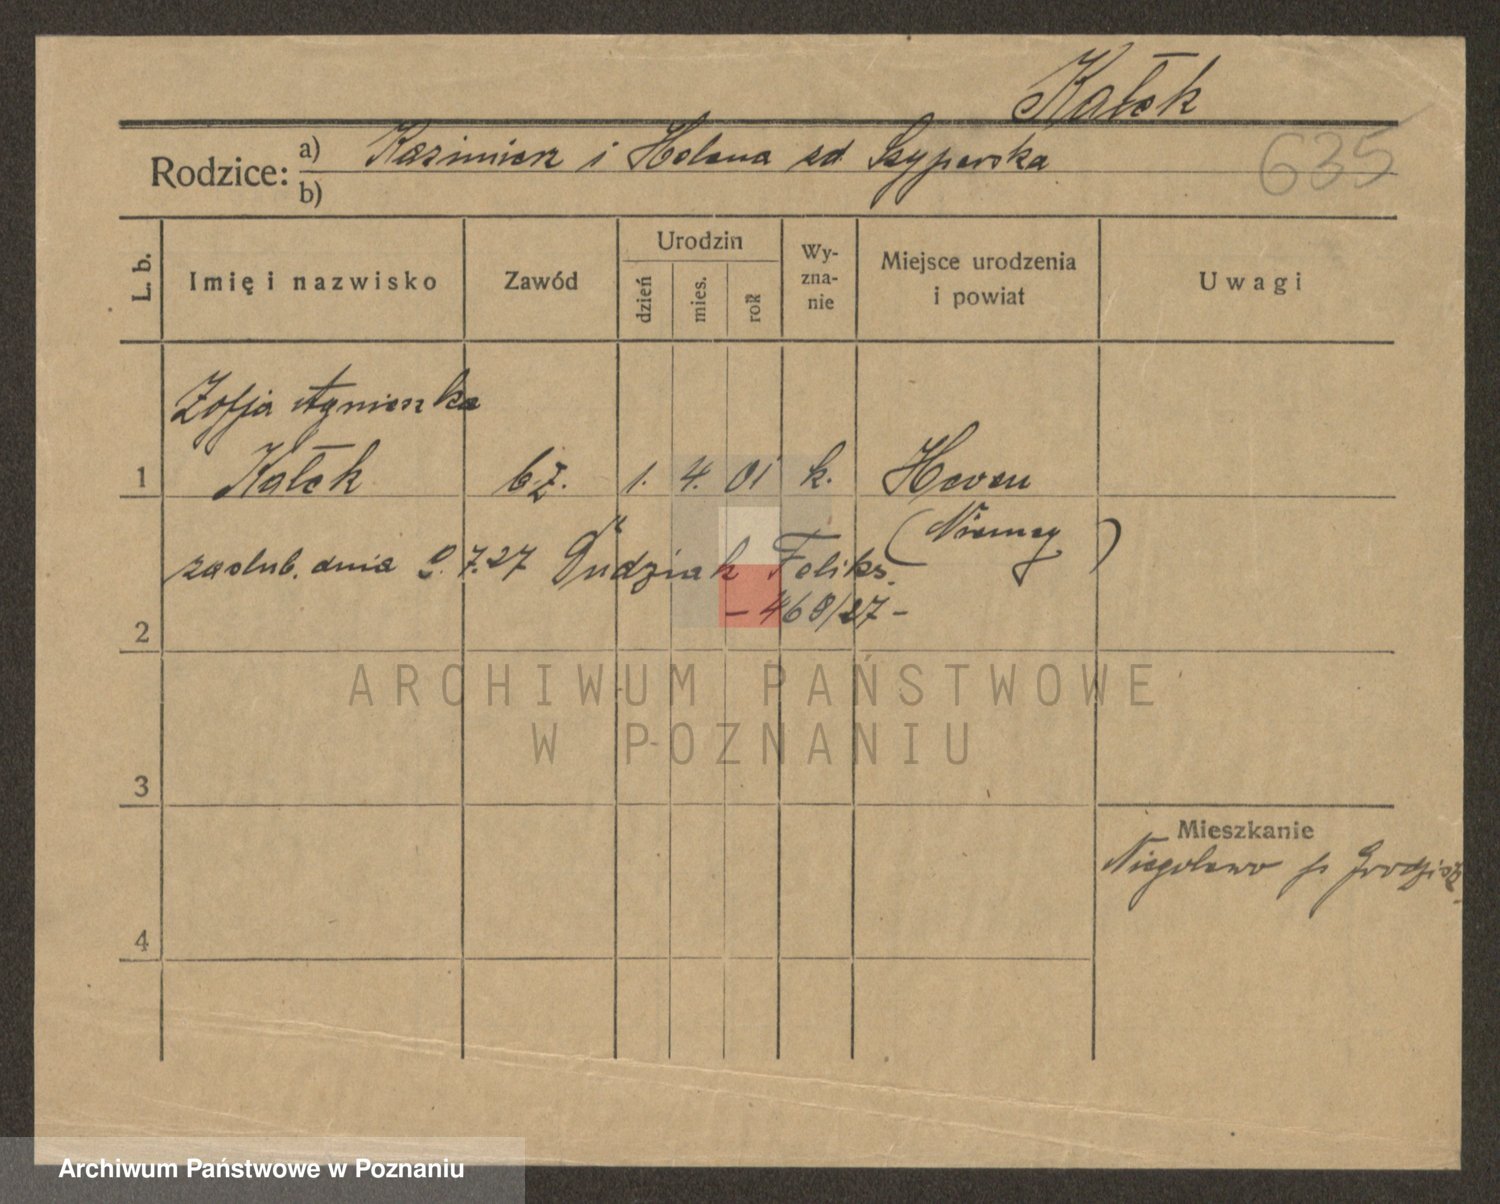 Kałek
Rodzice: a) Kazimierz i Helena zd. Szyperska
b)
635
L. b.
Imię i nazwisko
Zawód
Urodzin
dzień
mies.
rok
Wy-
zna-
nie
Miejsce urodzenia
i powiat
Uwagi
Zofja Agnieszka
1 Kałek bz. 1. 4. 01 k. Heven
(Niemcy)
zaślub. dnia 9.7.27 Dudziak Feliks.
- 468/27 -
2
ARCHIWUM PAŃSTWOWE
W POZNANIU
3
Mieszkanie
Niegolewo p. Grodzisk
4
Archiwum Państwowe w Poznaniu